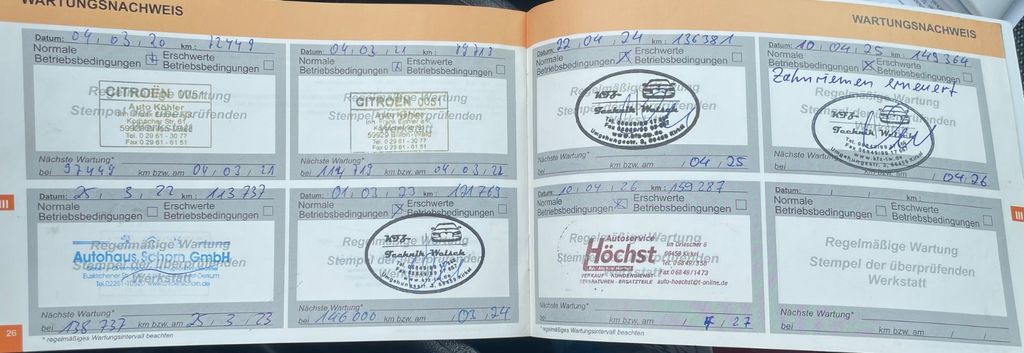 WARTUNGSNACHWEIS
Datum: 04, 03, 20 km: 72449
Normale Betriebsbedingungen
Erschwerte Betriebsbedingungen
Regelmäßige Wartung
Stempel der überprüfenden
Werkstatt
CITROËN 0051
Auto Köhler
Tel. 0 29 61 - 30 77
Fax 0 29 61 - 61 51
Nächste Wartung*
bei 97449 km bzw. am 04, 03, 21
Datum: 04, 03, 21 km:
Normale Betriebsbedingungen
Erschwerte Betriebsbedingungen
Regelmäßige Wartung
Stempel der überprüfenden
Werkstatt
CITROËN 0051
Auto Köhler
Tel. 0 29 61 - 30 77
Fax 0 29 61 - 61 51
Nächste Wartung*
bei km bzw. am 04, 03, 22
25, 3, 22 113 737
Normale Betriebsbedingungen
Erschwerte Betriebsbedingungen
Regelmäßige Wartung
Stempel der überprüfenden
Werkstatt
Autohaus Schorn GmbH
Nächste Wartung*
bei 138 737 km bzw. am 25, 3, 23
Datum: 01, 03, 23 km:
Normale Betriebsbedingungen
Erschwerte Betriebsbedingungen
Regelmäßige Wartung
Stempel der überprüfenden
Werkstatt
Nächste Wartung*
bei 146 000 km bzw. am , 03, 24
26
* regelmäßiges Wartungsintervall beachten
WARTUNGSNACHWEIS
Datum: 22, 04, 24 km: 136381
Normale Betriebsbedingungen
Erschwerte Betriebsbedingungen
KFZ-
Technik
Umgehungsstr. 3, 66459 Kirkel
Nächste Wartung*
bei km bzw. am , 04, 25
Datum: 10, 04, 25 km: 149 364
Normale Betriebsbedingungen
Erschwerte Betriebsbedingungen
Zahnriemen erneuert
Regelmäßige Wartung
Stempel der überprüfenden
KFZ-
Technik
www.kfz-tw.de
Umgehungsstr. 3, 66459 Kirkel
Nächste Wartung*
bei km bzw. am , 04, 26
Datum: 10, 04, 26 km: 159 287
Normale Betriebsbedingungen
Erschwerte Betriebsbedingungen
Regelmäßige Wartung
Stempel der überprüfenden
Werkstatt
Autoservice
Höchst
66459 Kirkel
Tel. 0 68 49 / 3 58
Fax 0 68 49 / 14 73
VERKAUF · KUNDENDIENST
REPARATUREN · ERSATZTEILE auto-hoechst@t-online.de
Nächste Wartung*
bei km bzw. am , 4, 27
* regelmäßiges Wartungsintervall beachten
Datum: , , km:
Normale Betriebsbedingungen
Erschwerte Betriebsbedingungen
Regelmäßige Wartung
Stempel der überprüfenden
Werkstatt
Nächste Wartung*
bei km bzw. am , ,